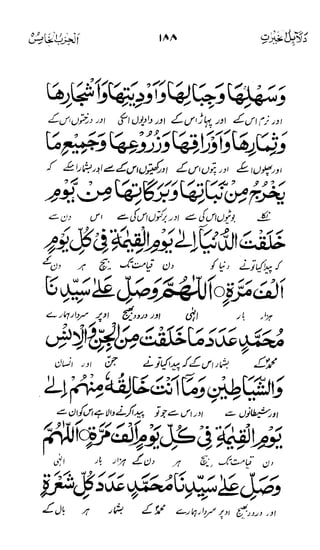 دلائل الخیرات ١٨٨ الحزب الخامس
وَسَهْلِهَا وَجِبَالِهَا وَاَوْدِيَتِهَا وَاَشْجَارِهَا
اور نرم اسکے اور پہاڑ اسکے اور وادی اسکی اور درختوں اسکے
وَثِمَارِهَا وَاَوْرَاقِهَا وَزُرُوْعِهَا وَجَمِيْعِ مَا
اور پھلوں اسکے اور پتوں اسکے اور کھیتوں اسکے سے اور بشمار اسکے کہ
يَخْرُجُ مِنْ نَبَاتِهَا وَبَرَكَاتِهَا مِنْ يَّوْمِ
نکلے بوٹیوں اس کی سے اور برکتوں اس کی سے اس دن سے
خَلَقْتَ الدُّنْيَا اِلٰى يَوْمِ الْقِيٰمَةِ فِيْ كُلِّ يَوْمٍ
کہ پیدا کیا تونے دنیا کو دن قیامت تک بیچ ہر دن کے
اَلْفَ مَرَّةٍ ۞ اَللّٰهُمَّ وَصَلِّ عَلٰى سَيِّدِنَا
ہزار بار الٰہی اور درود بھیج اوپر سردار ہمارے
مُحَمَّدٍ عَدَدَ مَا خَلَقْتَ مِنَ الْجِنِّ وَالْاِنْسِ
محمدؐ کے بشمار اس کے کہ پیدا کیا تونے جن اور انسان
وَالشَّيَاطِيْنِ وَمَآ اَنْتَ خَالِقُهٗ مِنْهُمْ اِلٰى
اور شیطانوں سے اور اس سے جو تو پیدا کرنے والا ہے اس کو ان سے
يَوْمِ الْقِيٰمَةِ فِيْ كُلِّ يَوْمٍ اَلْفَ مَرَّةٍ ۞ اَللّٰهُمَّ
دن قیامت تک بیچ ہر دن کے ہزار بار الٰہی
وَصَلِّ عَلٰى سَيِّدِنَا مُحَمَّدٍ عَدَدَ كُلِّ شَعْرَةٍ
اور درود بھیج اوپر سردار ہمارے محمدؐ کے بشمار ہر بال کے